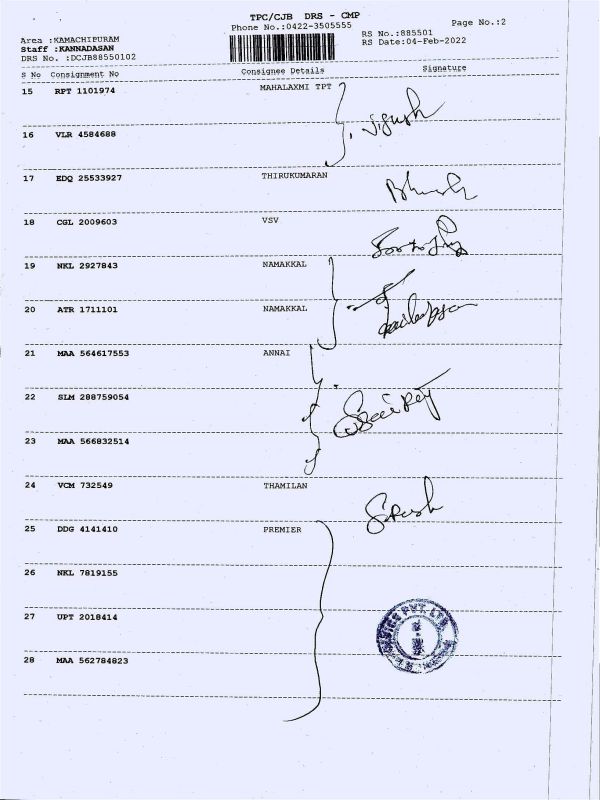 TPC/CJB DRS - CMP
Phone No.:0422-3505555
Page No.:2
Area :KAMACHIPURAM
Staff :KANNADASAN
DRS No. :DCJB88550102
RS No.:885501
RS Date:04-Feb-2022
S No Consignment No Consignee Details Signature
15 RPT 1101974 MAHALAXMI TPT
16 VLR 4584688
17 EDQ 25533927 THIRUKUMARAN
18 CGL 2009603 VSV
19 NKL 2927843 NAMAKKAL
20 ATR 1711101 NAMAKKAL
21 MAA 564617553 ANNAI
22 SLM 288759054
23 MAA 566832514
24 VCM 732549 THAMILAN
25 DDG 4141410 PREMIER
26 NKL 7819155
27 UPT 2018414
28 MAA 562784823
PVT. LTD.